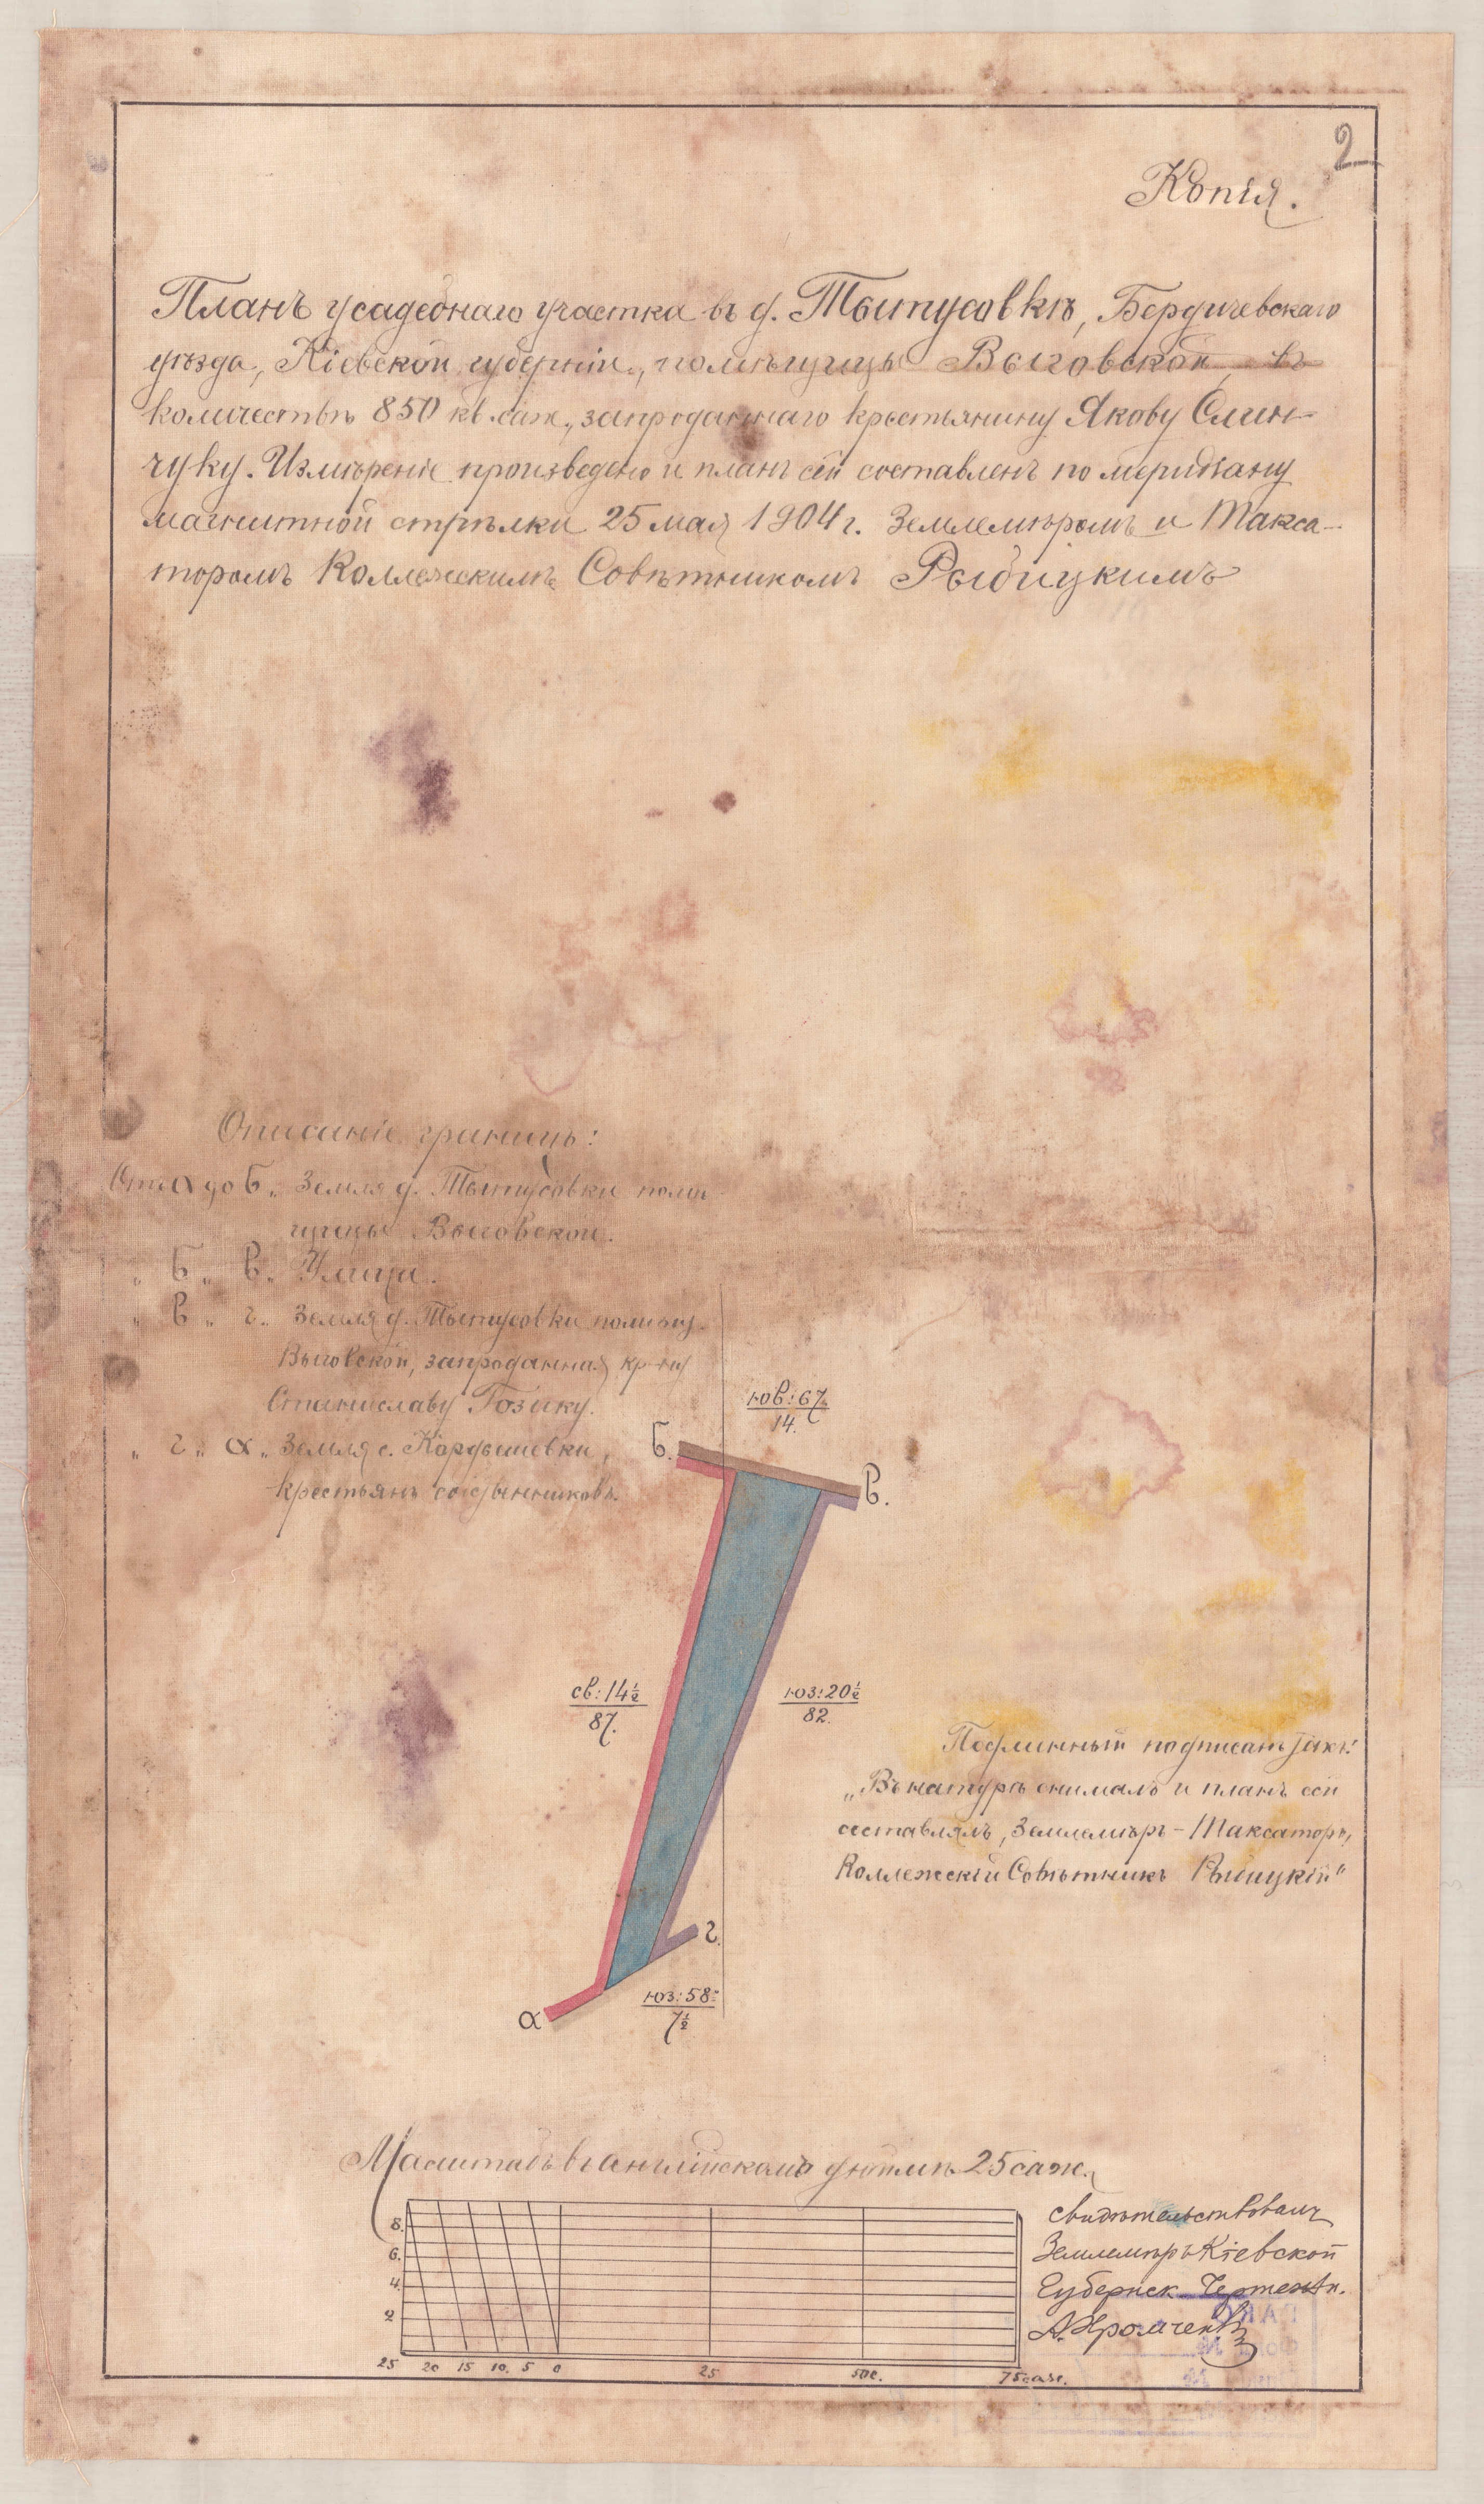 2
Копія.
Планъ усадебнаго участка въ д. Тытусовкѣ, Бердичевскаго
уѣзда, Кіевской губерніи, помѣщицы Выговской, въ
количествѣ 850 кв. саж., запроданнаго крестьянину Якову Слин-
чуку. Измѣреніе произведено и планъ сей составленъ по меридіану
магнитной стрѣлки 25 мая 1904 г. Землемѣромъ и Такса-
торомъ Коллежскимъ Совѣтникомъ Рыбицкимъ
Описаніе границъ:
Отъ а до Б. Земля д. Тытусовки помѣ
щицы Выговской.
„ Б „ В. Улица.
„ В „ г. Земля д. Тытусовки помѣщ.
Выговской, запроданная кр-ну
Станиславу Гозику.
„ г „ а „ Земля с. Кордышевки,
крестьянъ собственниковъ.
юв: 67
14.
Б.
В.
св: 14½
87.
юз: 20½
82.
г.
юз: 58
7½
а
Подлинный подписанъ такъ:
„Въ натурѣ снималъ и планъ сей
составлялъ, Землемѣръ-Таксаторъ,
Коллежскій Совѣтникъ Рыбицкій"
Масштабъ въ англійскомъ дюймѣ 25 саж.
8.
6.
4.
2
25 20 15 10. 5 0 25 50с. 75 саж.
Свидѣтельствовалъ
Землемѣръ Кіевской
Губернск. Чертежн.